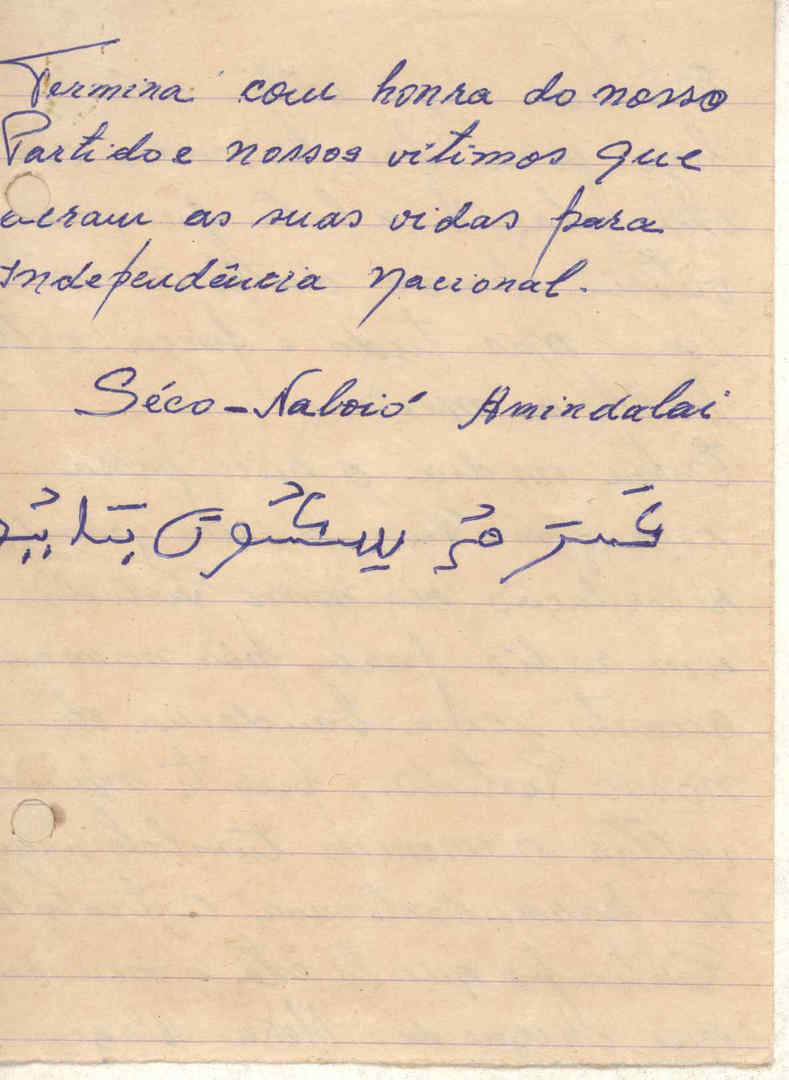 Termina com honra do nosso
Partido e nossos vitimos que
deram as suas vidas para
Independência Nacional.
Séco - Naboió Amindalai